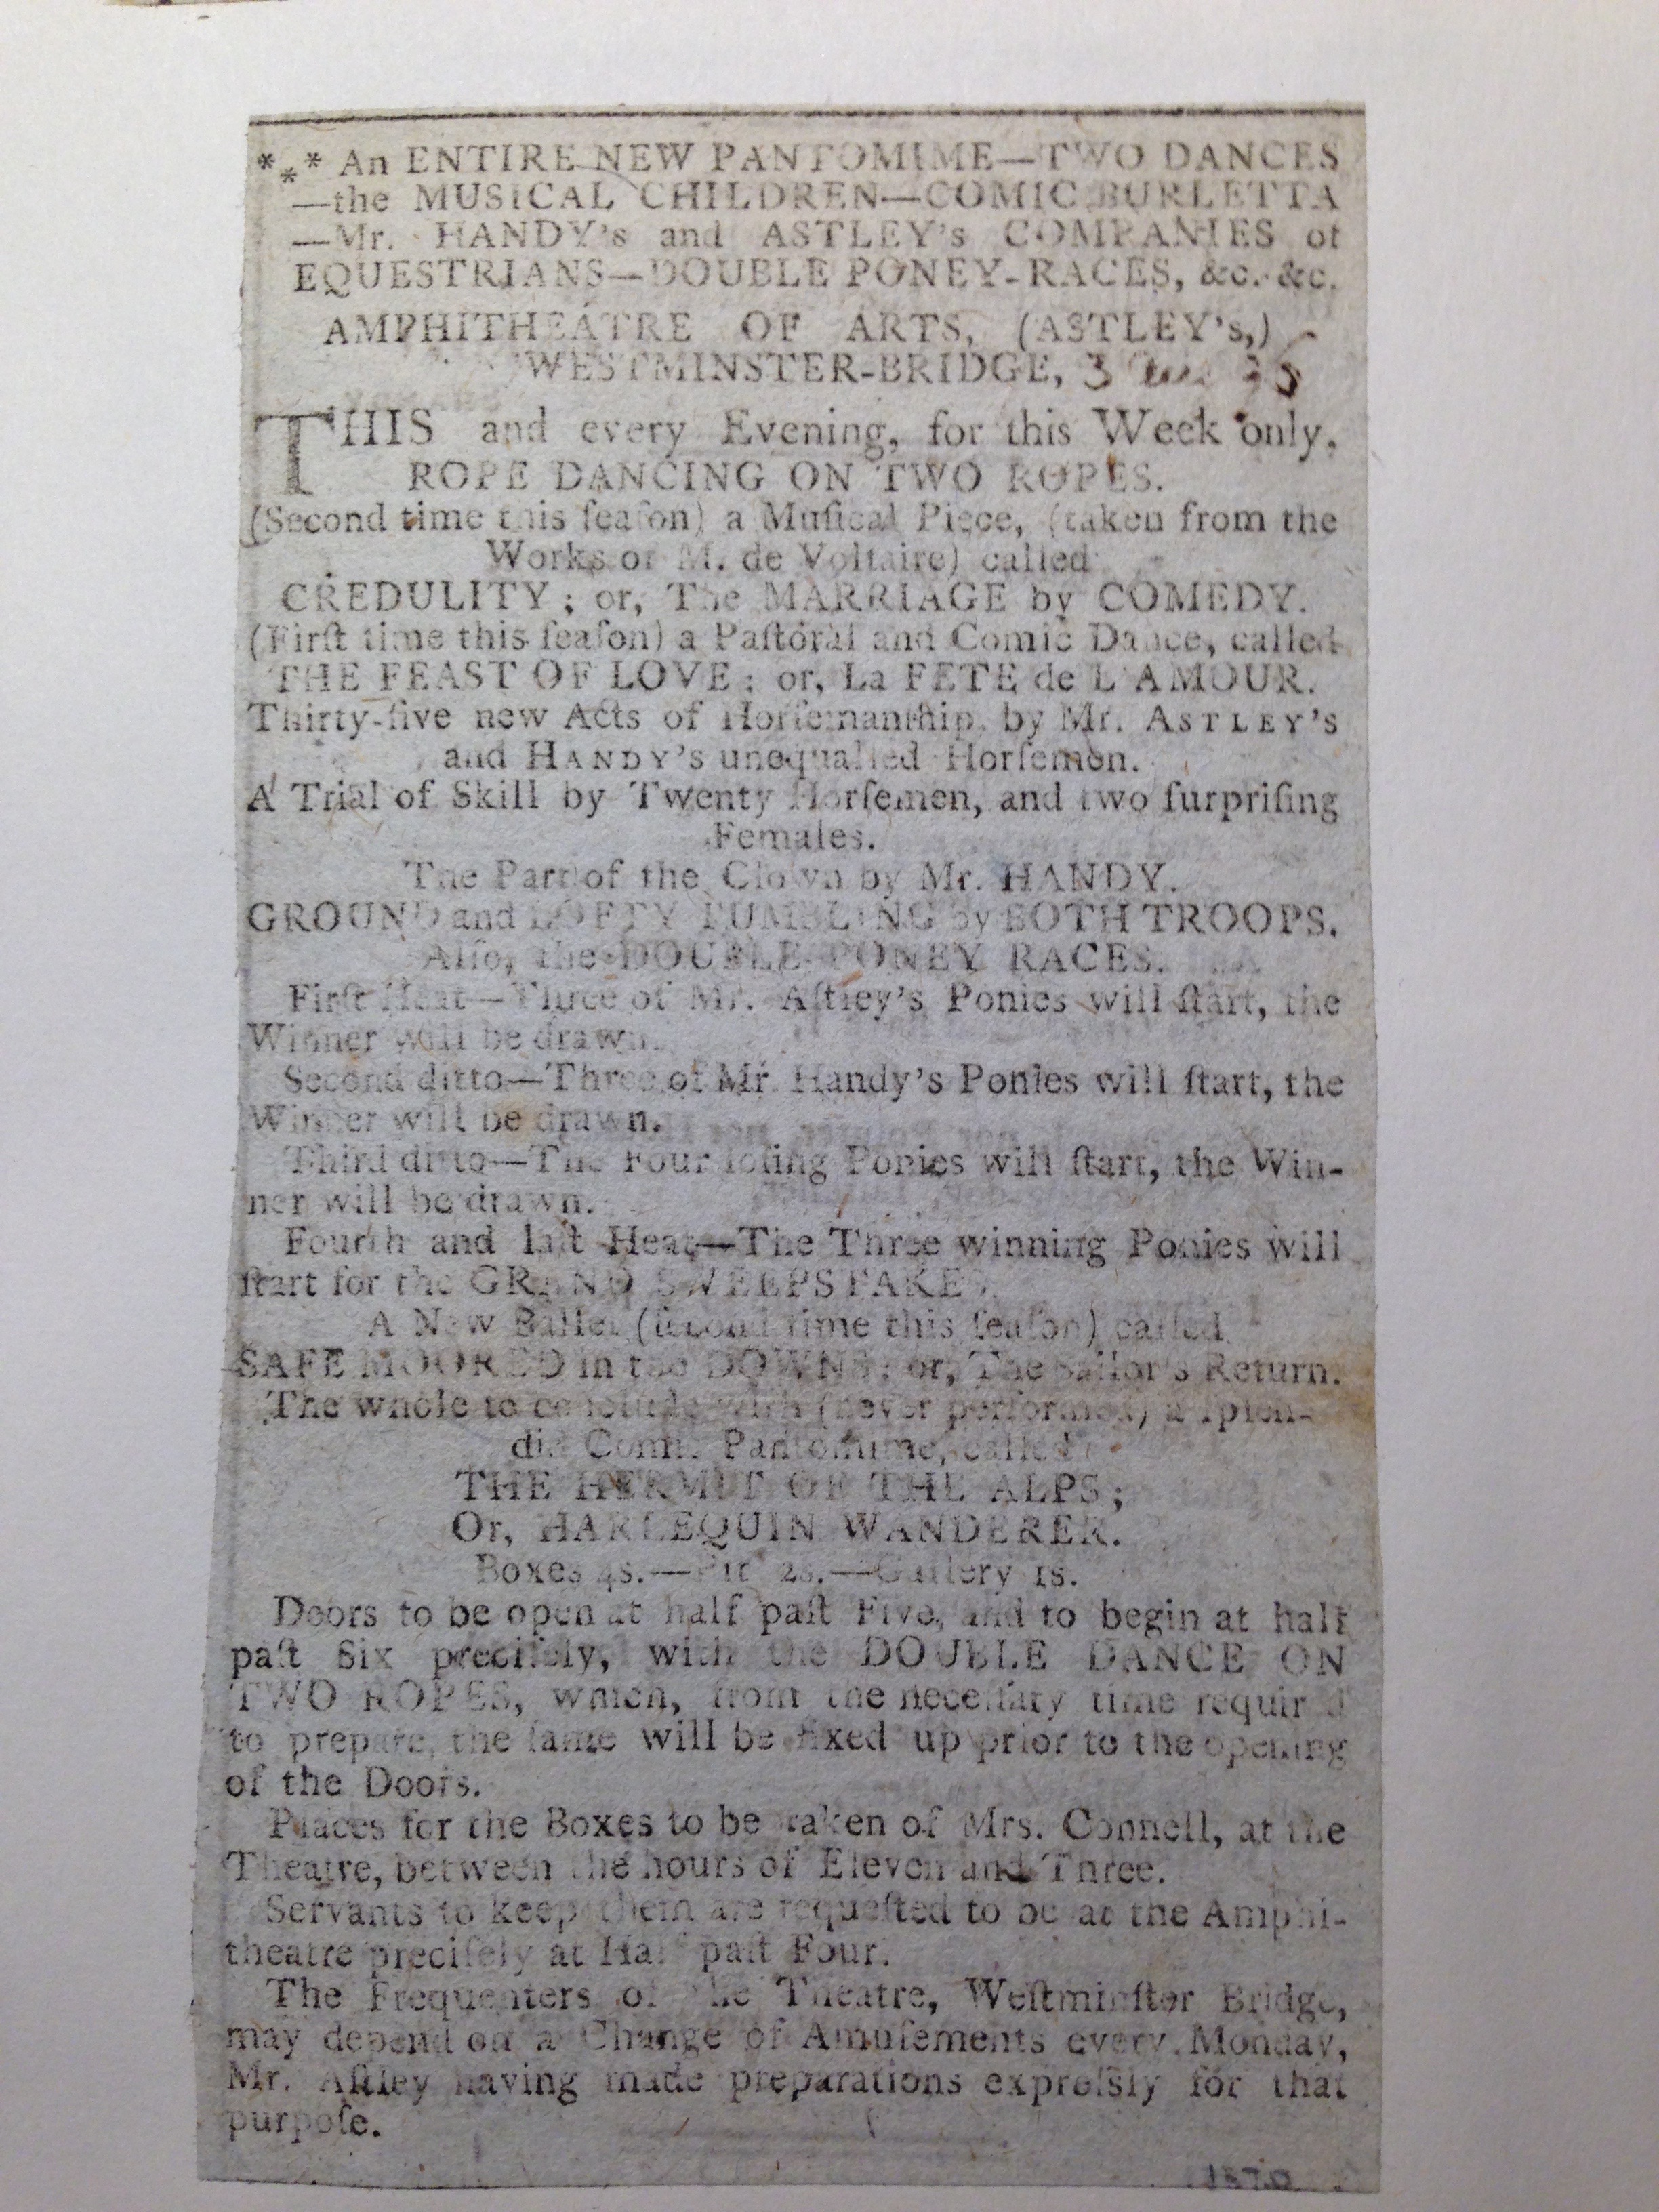 *⁎* An ENTIRE NEW PANTOMIME—TWO DANCES
—the MUSICAL CHILDREN—COMIC BURLETTA
—Mr. HANDY's and ASTLEY's COMPANIES of
EQUESTRIANS—DOUBLE PONEY-RACES, &c. &c.
AMPHITHEATRE OF ARTS, (ASTLEY's,)
WESTMINSTER-BRIDGE, 3
THIS and every Evening, for this Week only,
ROPE DANCING ON TWO ROPES.
(Second time this ſeaſon) a Muſical Piece, (taken from the
Works of M. de Voltaire) called
CREDULITY; or, The MARRIAGE by COMEDY.
(Firſt time this ſeaſon) a Paſtoral and Comic Dance, called
THE FEAST OF LOVE; or, La FETE de L'AMOUR.
Thirty-five new Acts of Horſemanſhip, by Mr. ASTLEY's
and HANDY's unequalled Horſemen.
A Trial of Skill by Twenty Horſemen, and two ſurpriſing
Females.
The Part of the Clown by Mr. HANDY.
GROUND and LOFTY TUMBLING by BOTH TROOPS.
Alſo, the DOUBLE PONEY RACES.
Firſt Heat—Three of Mr. Aſtley's Ponies will ſtart, the
Winner will be drawn.
Second ditto—Three of Mr. Handy's Ponies will ſtart, the
Winner will be drawn.
Third ditto—The Four loſing Ponies will ſtart, the Win-
ner will be drawn.
Fourth and laſt Heat—The Three winning Ponies will
ſtart for the GRAND SWEEPSTAKES.
A New Ballet (ſecond time this ſeaſon) called
SAFE MOORED in the DOWNS; or, The Sailor's Return.
The whole to conclude with (never performed) a ſplen-
did Comic Pantomime, called
THE HERMIT OF THE ALPS;
Or, HARLEQUIN WANDERER.
Boxes 4s.—Pit 2s.—Gallery 1s.
Doors to be open at half paſt Five, and to begin at half
paſt Six preciſely, with the DOUBLE DANCE ON
TWO ROPES, which, from the neceſſary time required
to prepare the ſame will be fixed up prior to the opening
of the Doors.
Places for the Boxes to be taken of Mrs. Connell, at the
Theatre, between the hours of Eleven and Three.
Servants to keep them are requeſted to be at the Amphi-
theatre preciſely at Half paſt Four.
The Frequenters of the Theatre, Weſtminſter Bridge,
may depend on a Change of Amuſements every Monday,
Mr. Aſtley having made preparations expreſsly for that
purpoſe.